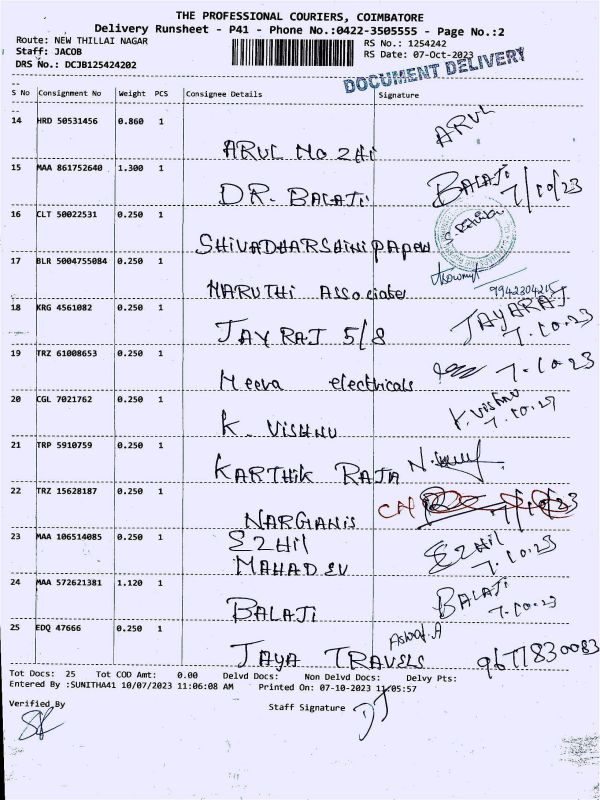 THE PROFESSIONAL COURIERS, COIMBATORE
Delivery Runsheet - P41 - Phone No.:0422-3505555 - Page No.:2
Route: NEW THILLAI NAGAR
RS No.: 1254242
Staff: JACOB
RS Date: 07-Oct-2023
DRS No.: DCJB125424202
DOCUMENT DELIVERY
S No Consignment No Weight PCS Consignee Details Signature
14 HRD 50531456 0.860 1
ARUL MO ZHI ARUL
15 MAA 861752640 1.300 1
DR. BALAJI BALAJI 7/10/23
16 CLT 50022531 0.250 1
SHIVADHARSHINI PAPER
17 BLR 5004755084 0.250 1
MARUTHI ASSociates 9942304215
18 KRG 4561082 0.250 1
JAY RAJ 5/8 JAYARAJ 7.10.23
19 TRZ 61008653 0.250 1
Meeva electricals 7.10.23
20 CGL 7021762 0.250 1
K. VISHNU K. Vishnu
21 TRP 5910759 0.250 1
KARTHIK RAJA
22 TRZ 15628187 0.250 1
NARGHANIS
23 MAA 106514085 0.250 1
EZHIL
MAHADEV EZHIL 7.10.23
24 MAA 572621381 1.120 1
BALAJI BALAJI 7.10.23
25 EDQ 47666 0.250 1
JAYA TRAVELS 9677830083
Tot Docs: 25 Tot COD Amt: 0.00 Delvd Docs: Non Delvd Docs: Delvy Pts:
Entered By :SUNITHA41 10/07/2023 11:06:08 AM Printed On: 07-10-2023 11:05:57
Verified By Staff Signature